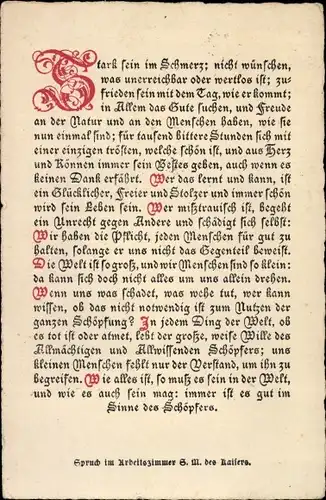 Stark sein im Schmerz; nicht wünschen,
was unerreichbar oder wertlos ist; zu-
frieden sein mit dem Tag, wie er kommt;
in Allem das Gute suchen, und Freude
an der Natur und an den Menschen haben, wie sie
nun einmal sind; für tausend bittere Stunden sich mit
einer einzigen trösten, welche schön ist, und aus Herz
und Können immer sein Bestes geben, auch wenn es
keinen Dank erfährt. Wer das lernt und kann, ist
ein Glücklicher, Freier und Stolzer und immer schön
wird sein Leben sein. Wer mißtrauisch ist, begeht
ein Unrecht gegen Andere und schädigt sich selbst:
Wir haben die Pflicht, jeden Menschen für gut zu
halten, solange er uns nicht das Gegenteil beweist.
Die Welt ist so groß, und wir Menschen sind so klein:
da kann sich doch nicht alles um uns allein drehen.
Wenn uns was schadet, was wehe tut, wer kann
wissen, ob das nicht notwendig ist zum Nutzen der
ganzen Schöpfung? In jedem Ding der Welt, ob
es tot ist oder atmet, lebt der große, weise Wille des
Allmächtigen und Allwissenden Schöpfers; uns
kleinen Menschen fehlt nur der Verstand, um ihn zu
begreifen. Wie alles ist, so muß es sein in der Welt,
und wie es auch sein mag: immer ist es gut im
Sinne des Schöpfers.
Spruch im Arbeitszimmer S. M. des Kaisers.